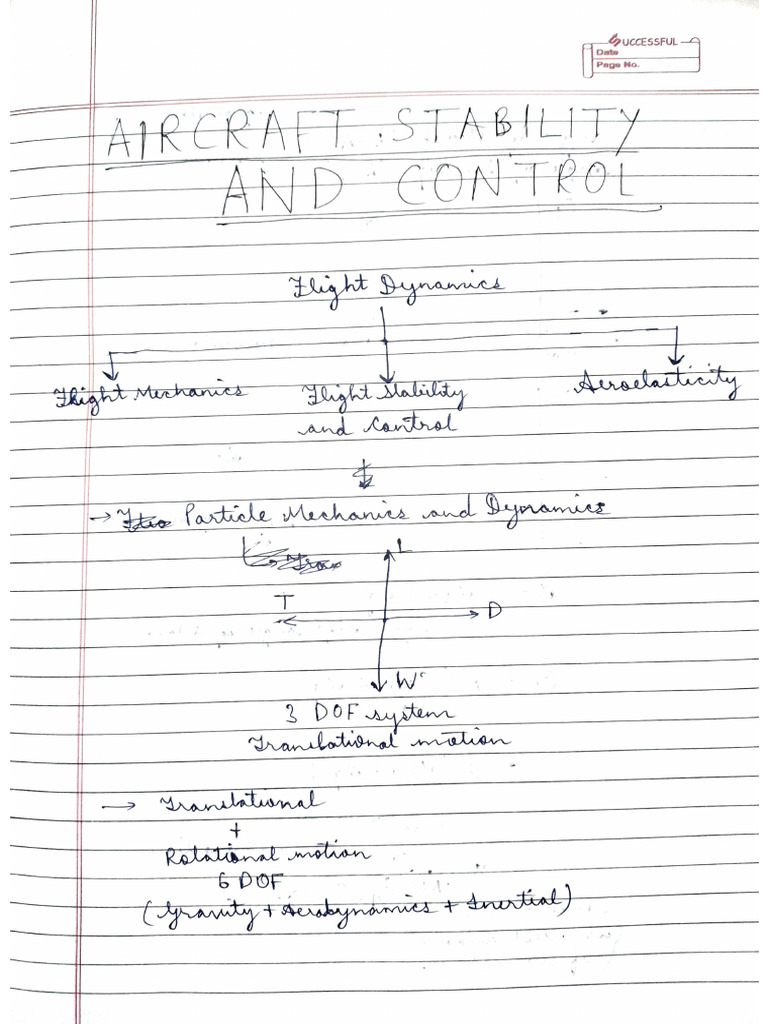 SUCCESSFUL
Date
Page No.
AIRCRAFT STABILITY
AND CONTROL
Flight Dynamics
Flight Mechanics Flight Stability Aeroelasticity
and Control
→ Particle Mechanics and Dynamics
L
T D
W
3 DOF system
Translational motion
→ Translational
+
Rotational motion
6 DOF
(Gravity + Aerodynamics + Inertial)